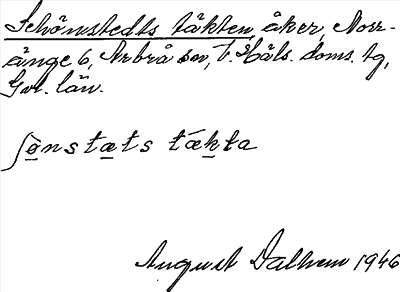 Schönstedts täkten, åker, Norr-
änge 6, Arbrå sn, v. Häls. doms. tg,
Gvl. län.
ʃønstæts tækta
August Dalhem 1946